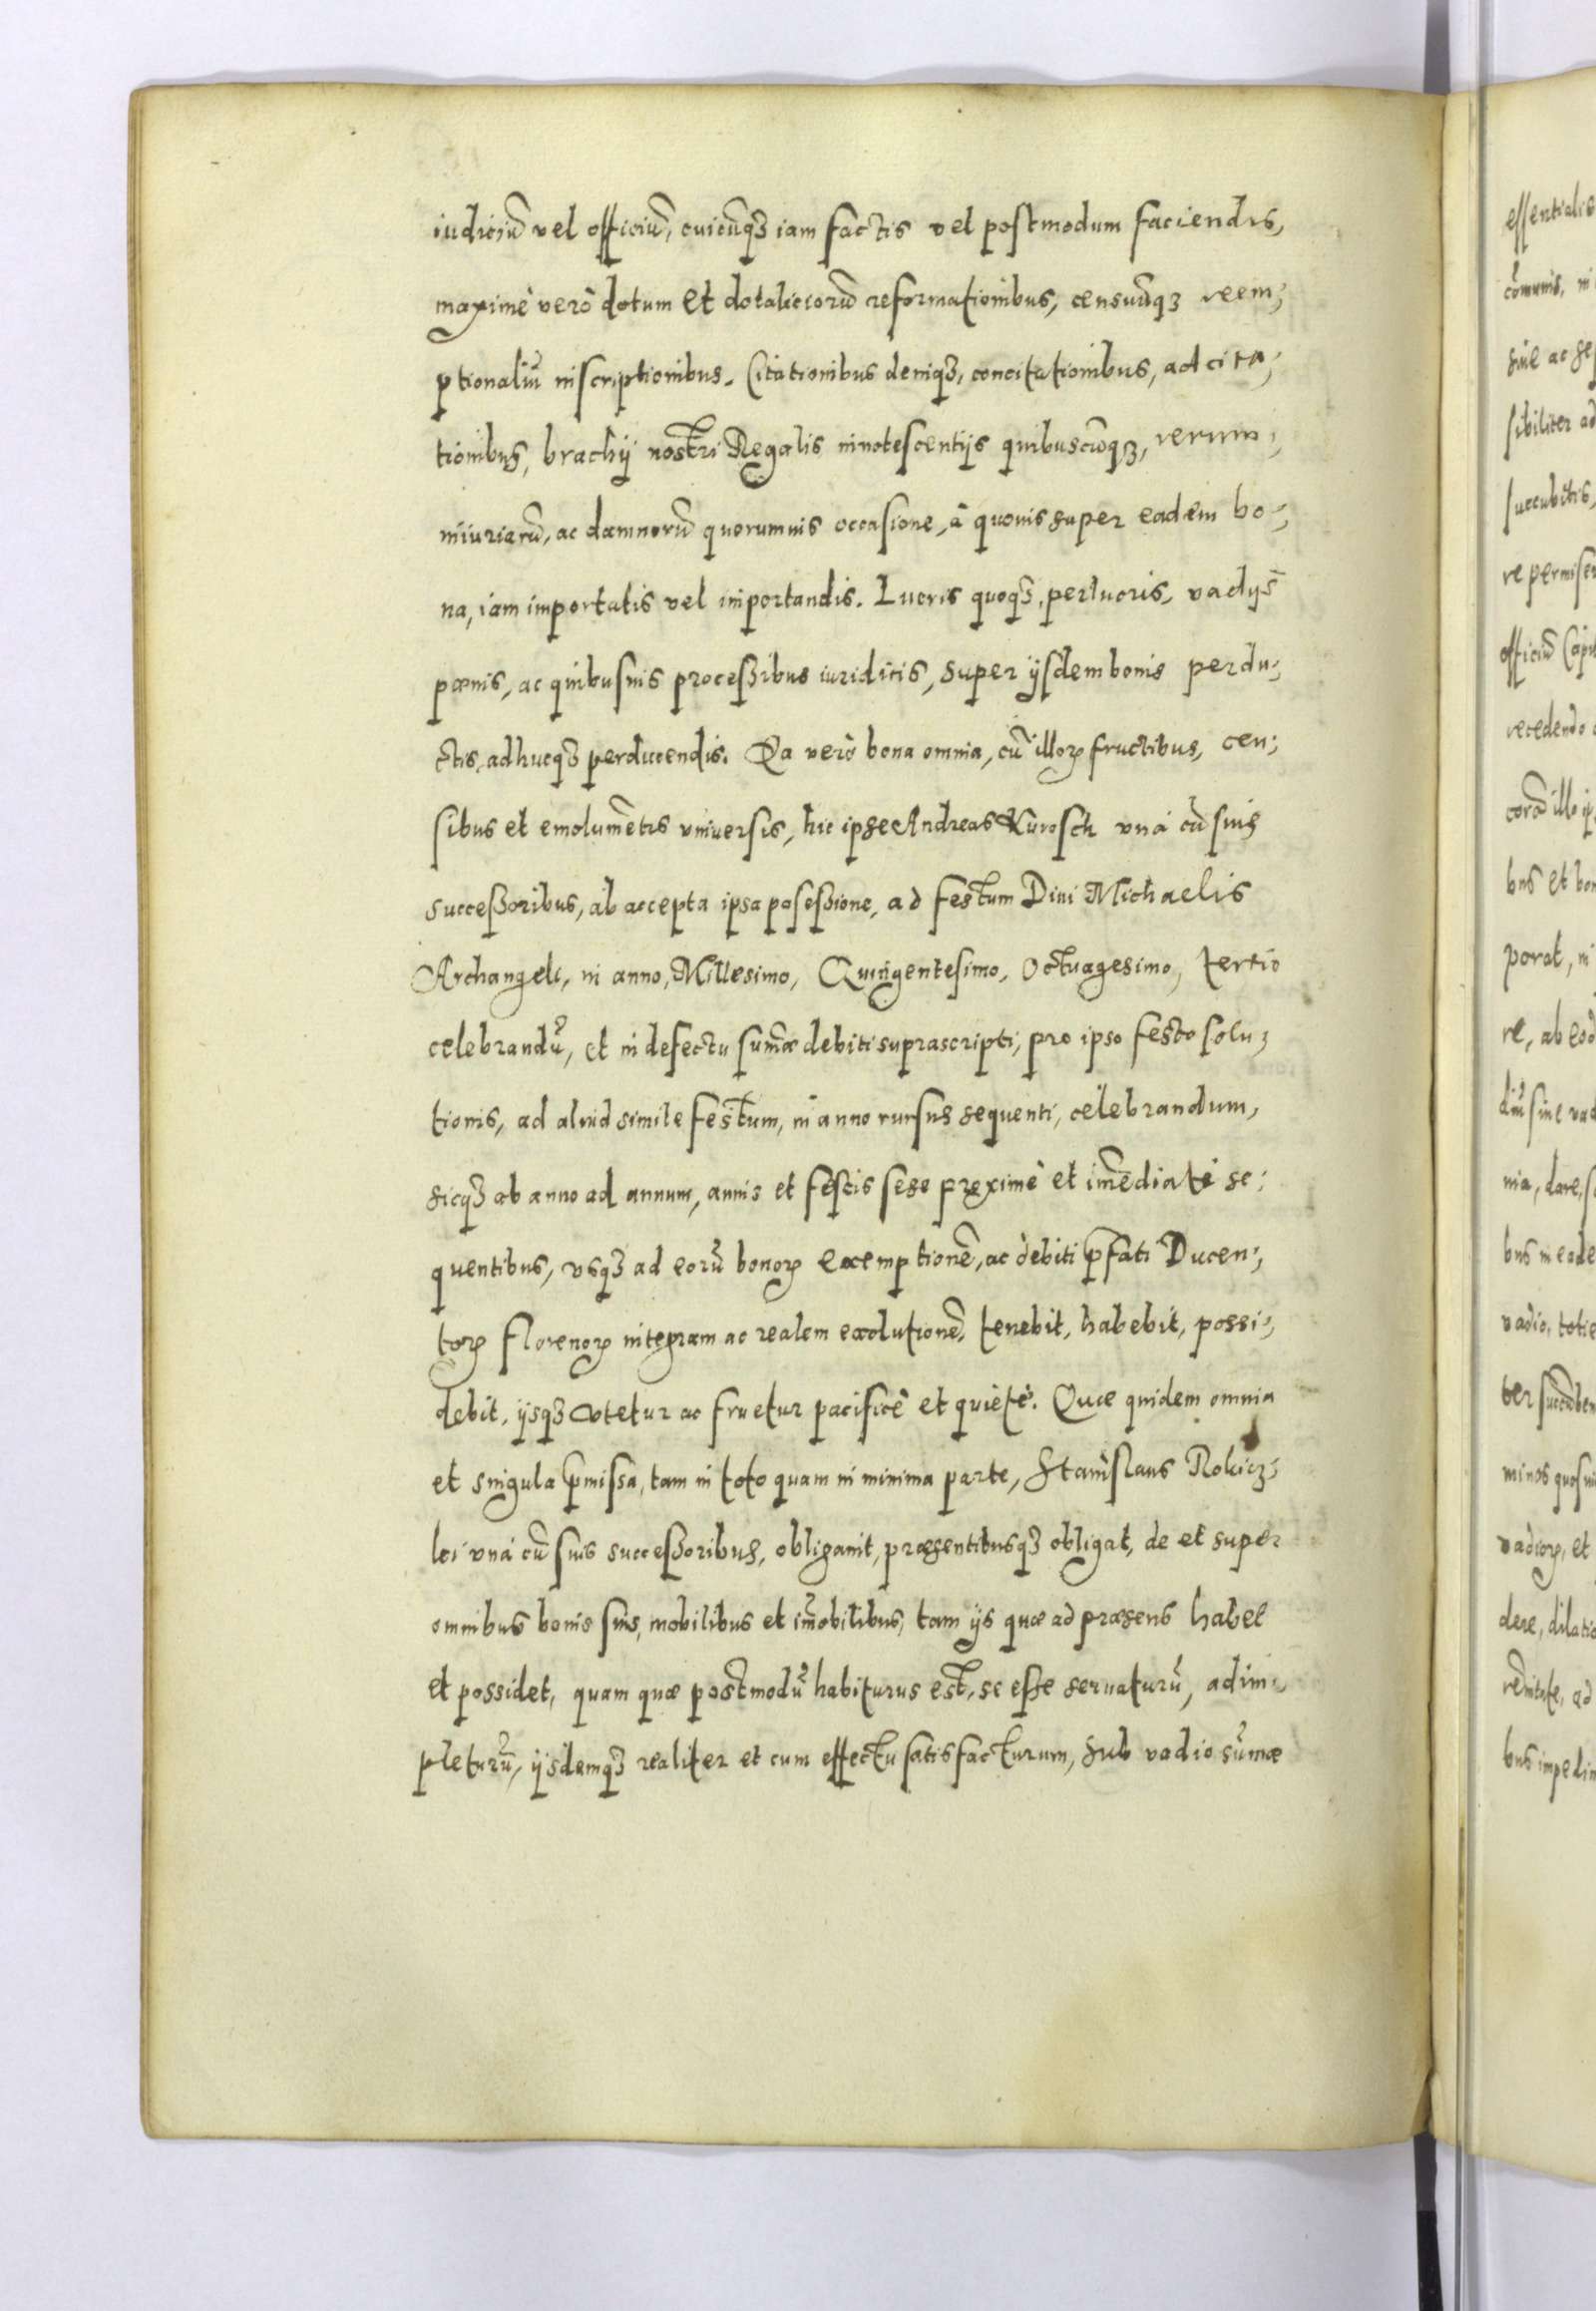 iudiciũ vel officiũ, cuicũqꝫ iam factis vel postmodum faciendis,
maximè verò dotum et dotaliciorũ reformationibus, censuũqꝫ reem;
ptionaliũ inscriptionibus. Citationibus deniqꝫ, concitationibus, adcita;
tionibus, brachij nostri Regalis innotescentijs quibuscũqꝫ, rerum;
iniuriarũ, ac damnorũ quorumuis occasione, à quouis super eadem bo;
na, iam importatis vel importandis. Lucris quoqꝫ, perlucris, vadijs
pœnis, ac quibusuis processibus iuridicis, super ijsdem bonis perdu;
ctis, adhucqꝫ perducendis. Ea verò bona omnia, cũ illoꝝ fructibus, cen;
sibus et emolumẽtis vniuersis, hic ipse Andreas Kurosch vnà cũ suis
successoribus, ab accepta ipsa posessione, ad festum Diui Michaelis
Archangeli, in anno, Millesimo, Quingentesimo, Octuagesimo, tertio
celebrandũ, et in defectu sum̃æ debiti suprascripti, pro ipso festo solu;
tionis, ad aliud simile festum, in anno rursus sequenti, celebrandum,
sicqꝫ ab anno ad annum, annis et festis sese proximè et im̃ediatè se;
quentibus, vsqꝫ ad eorũ bonoꝝ exemptionẽ, ac debiti p̃fati Ducen;
toꝝ florenoꝝ integram ac realem exolutionẽ, tenebit, habebit, possi;
debit, ijsqꝫ vtetur ac fruetur pacificè et quietè. Quæ quidem omnia
et singula p̃missa, tam in toto quam in minima parte, Stanislaus Rokicz;
ki vnà cũ suis successoribus, obligauit, præsentibusqꝫ obligat, de et super
omnibus bonis suis, mobilibus et im̃obilibus, tam ijs quæ ad præsens habet
et possidet, quam quæ postmodũ habiturus est, se esse seruaturũ, adim;
pleturũ, ijsdemqꝫ realiter et cum effectu satisfacturum, sub vadio sum̃æ